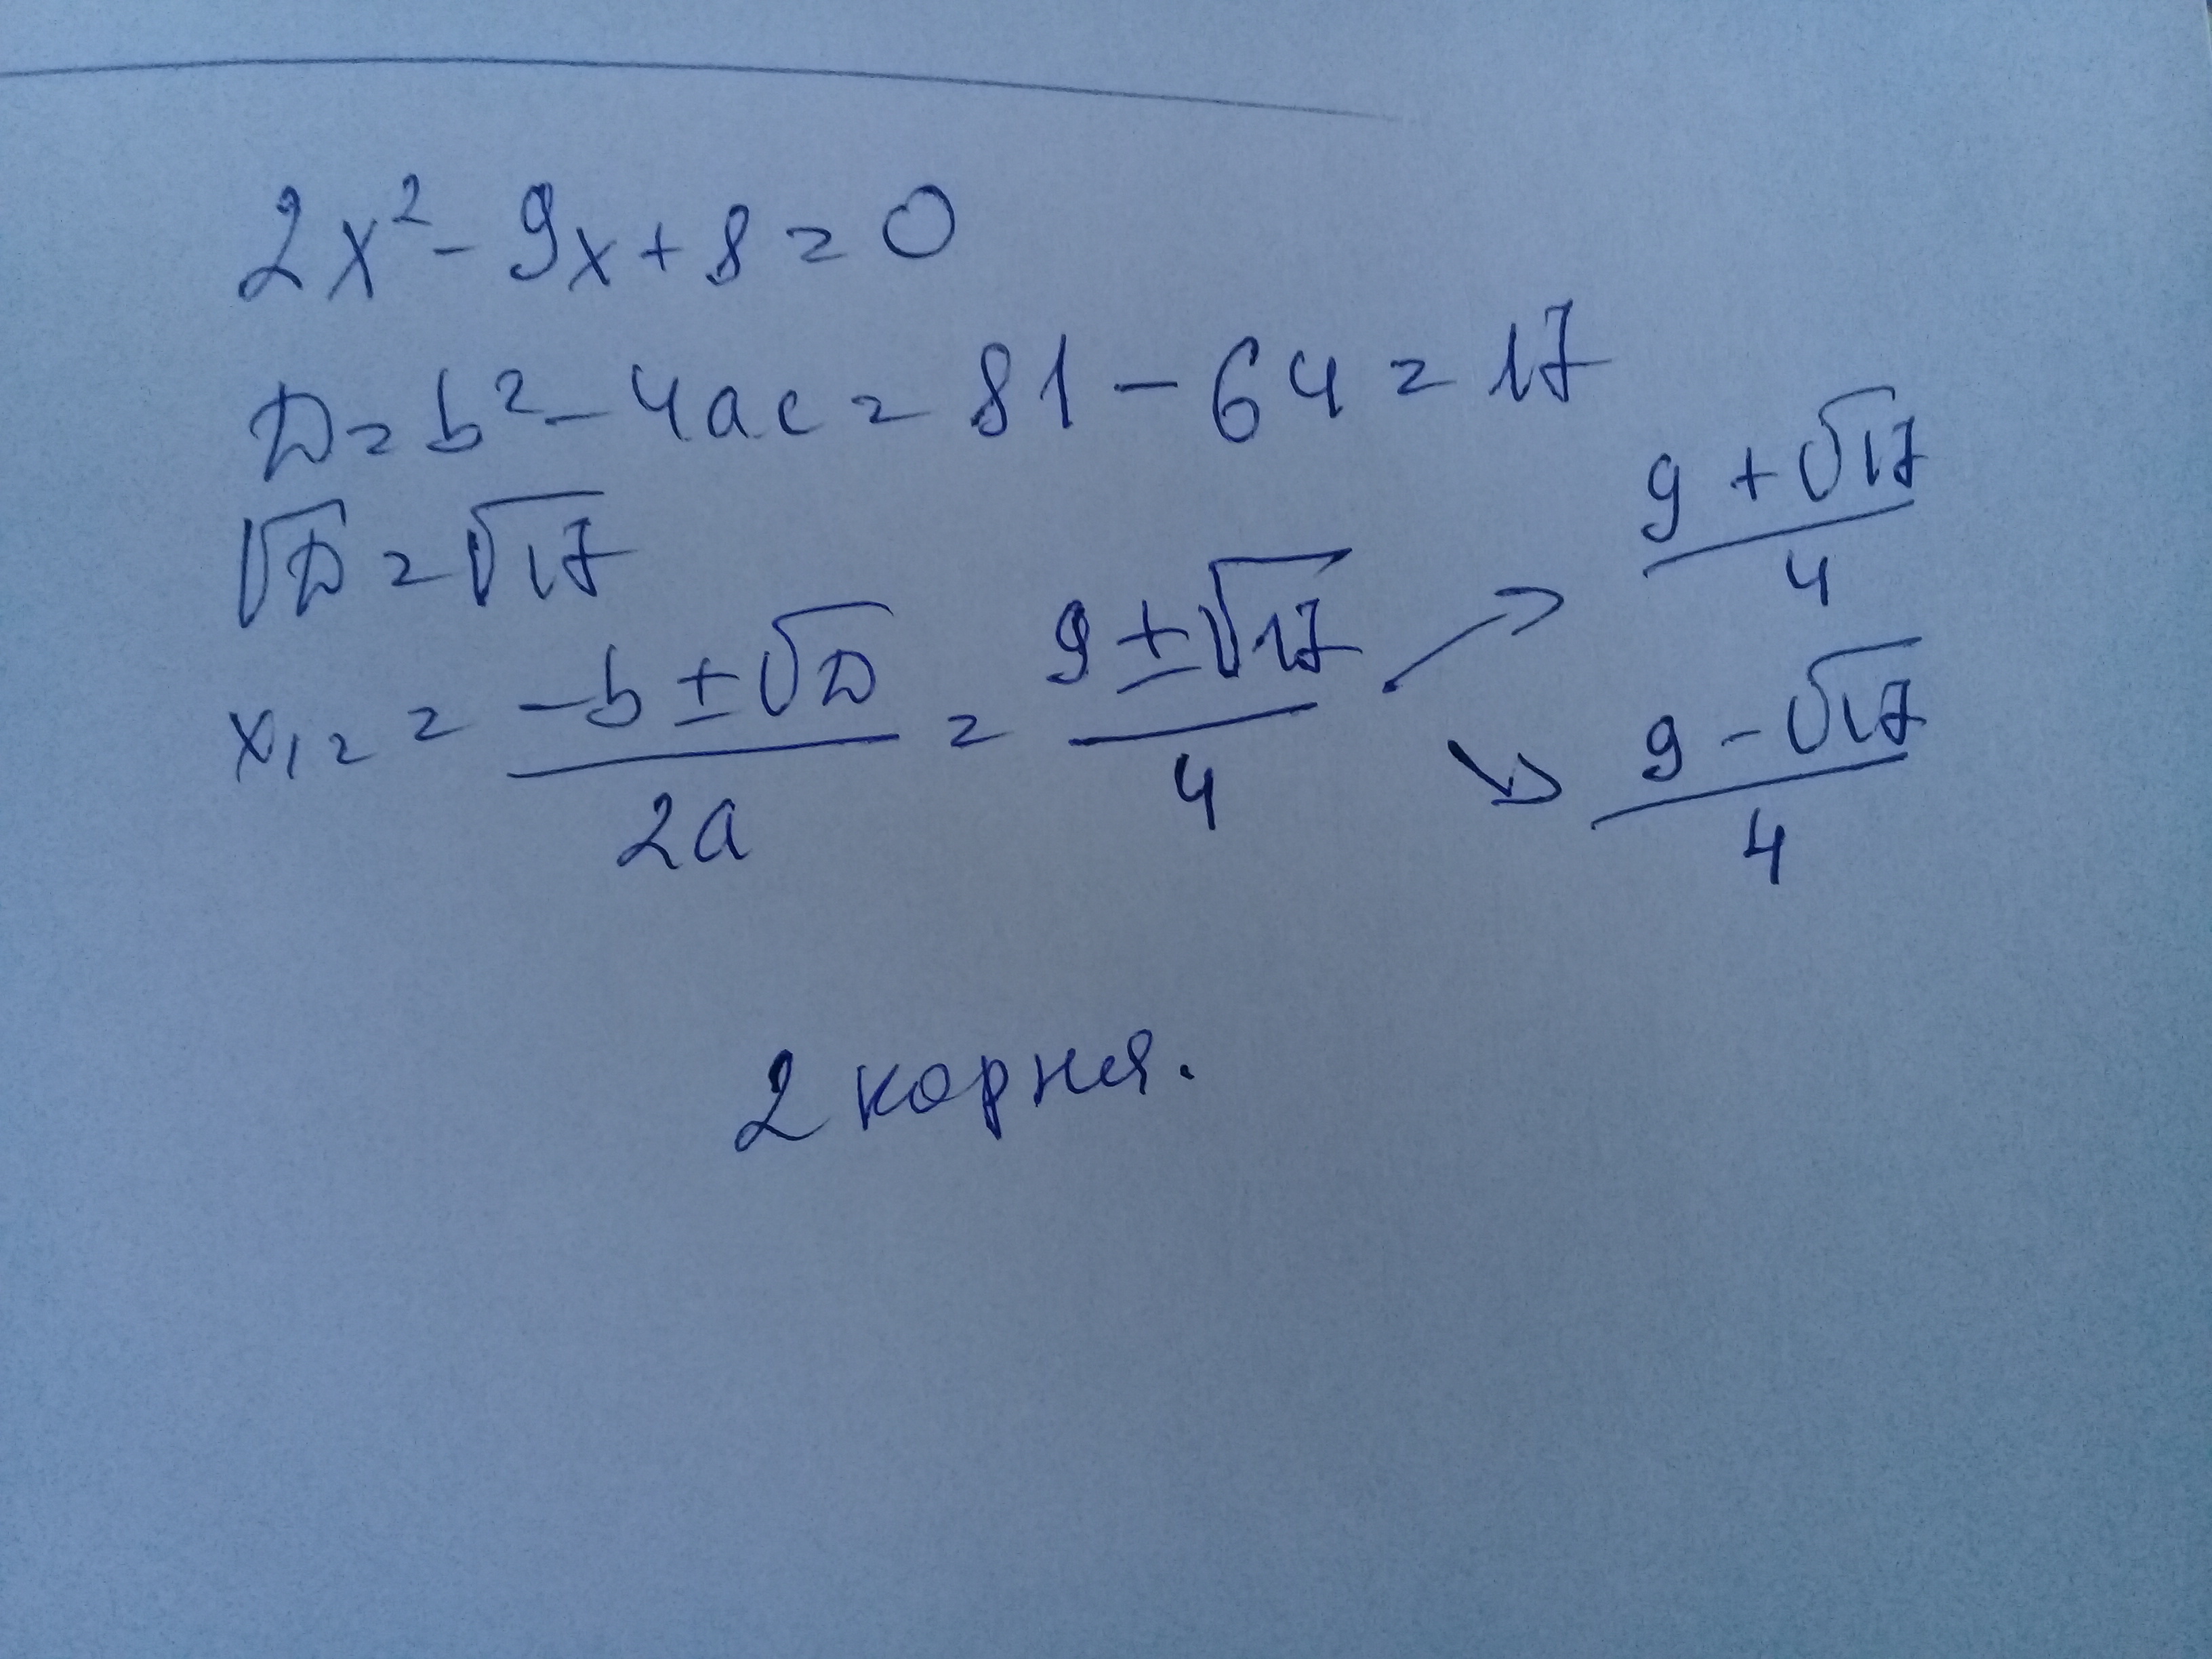 2x² - 9x + 8 = 0
D = b² - 4ac = 81 - 64 = 17
√D = √17
x₁₂ = (-b ± √D)/(2a) = (9 ± √17)/4 ↗ (9 + √17)/4
↘ (9 - √17)/4
2 корня.